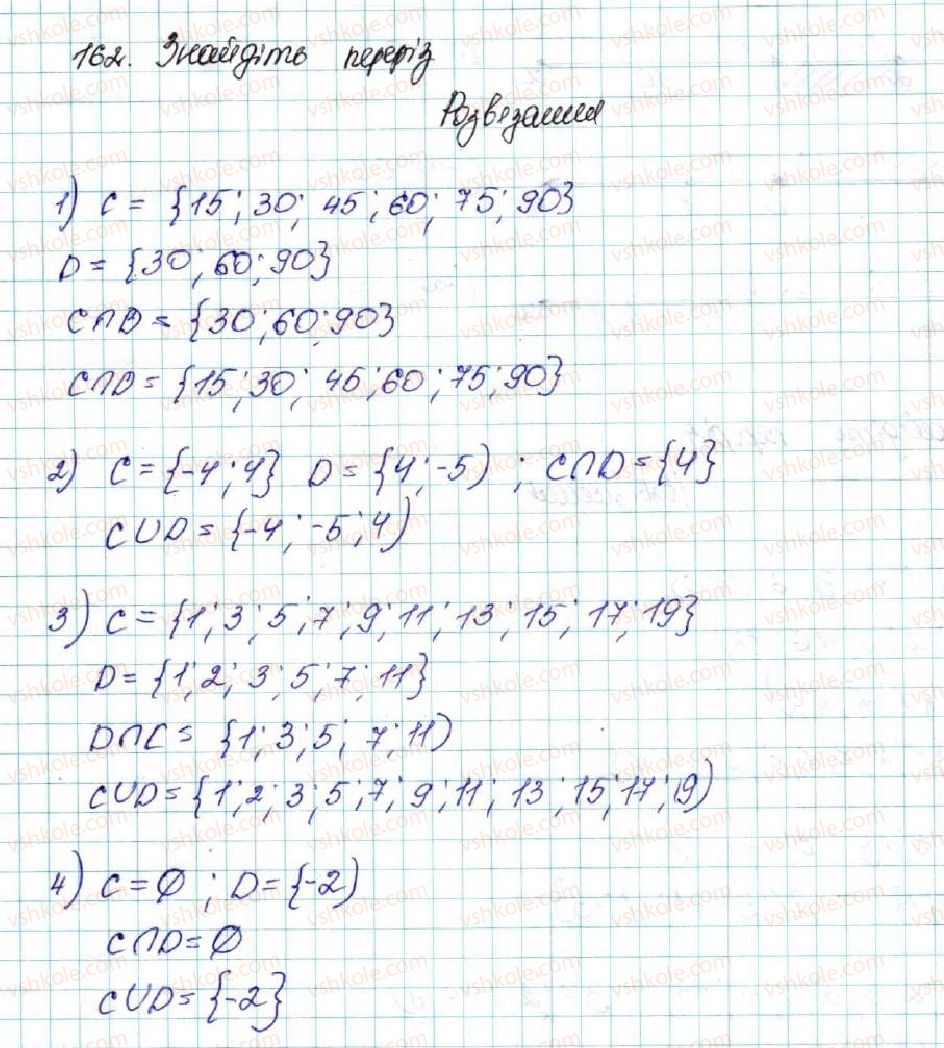 162. Знайдіть переріз
Розвязання
1) C = {15; 30; 45; 60; 75; 90}
D = {30; 60; 90}
C∩D = {30; 60; 90}
C∩D = {15; 30; 45; 60; 75; 90}
2) C = {-4; 4} D = {4; -5) ; C∩D = {4}
C∪D = {-4; -5; 4)
3) C = {1; 3; 5; 7; 9; 11; 13; 15; 17; 19}
D = {1; 2; 3; 5; 7; 11}
D∩C = {1; 3; 5; 7; 11)
C∪D = {1; 2; 3; 5; 7; 9; 11; 13; 15; 17; 19)
4) C = ∅ ; D = {-2)
C∩D = ∅
C∪D = {-2}
vshkole.com